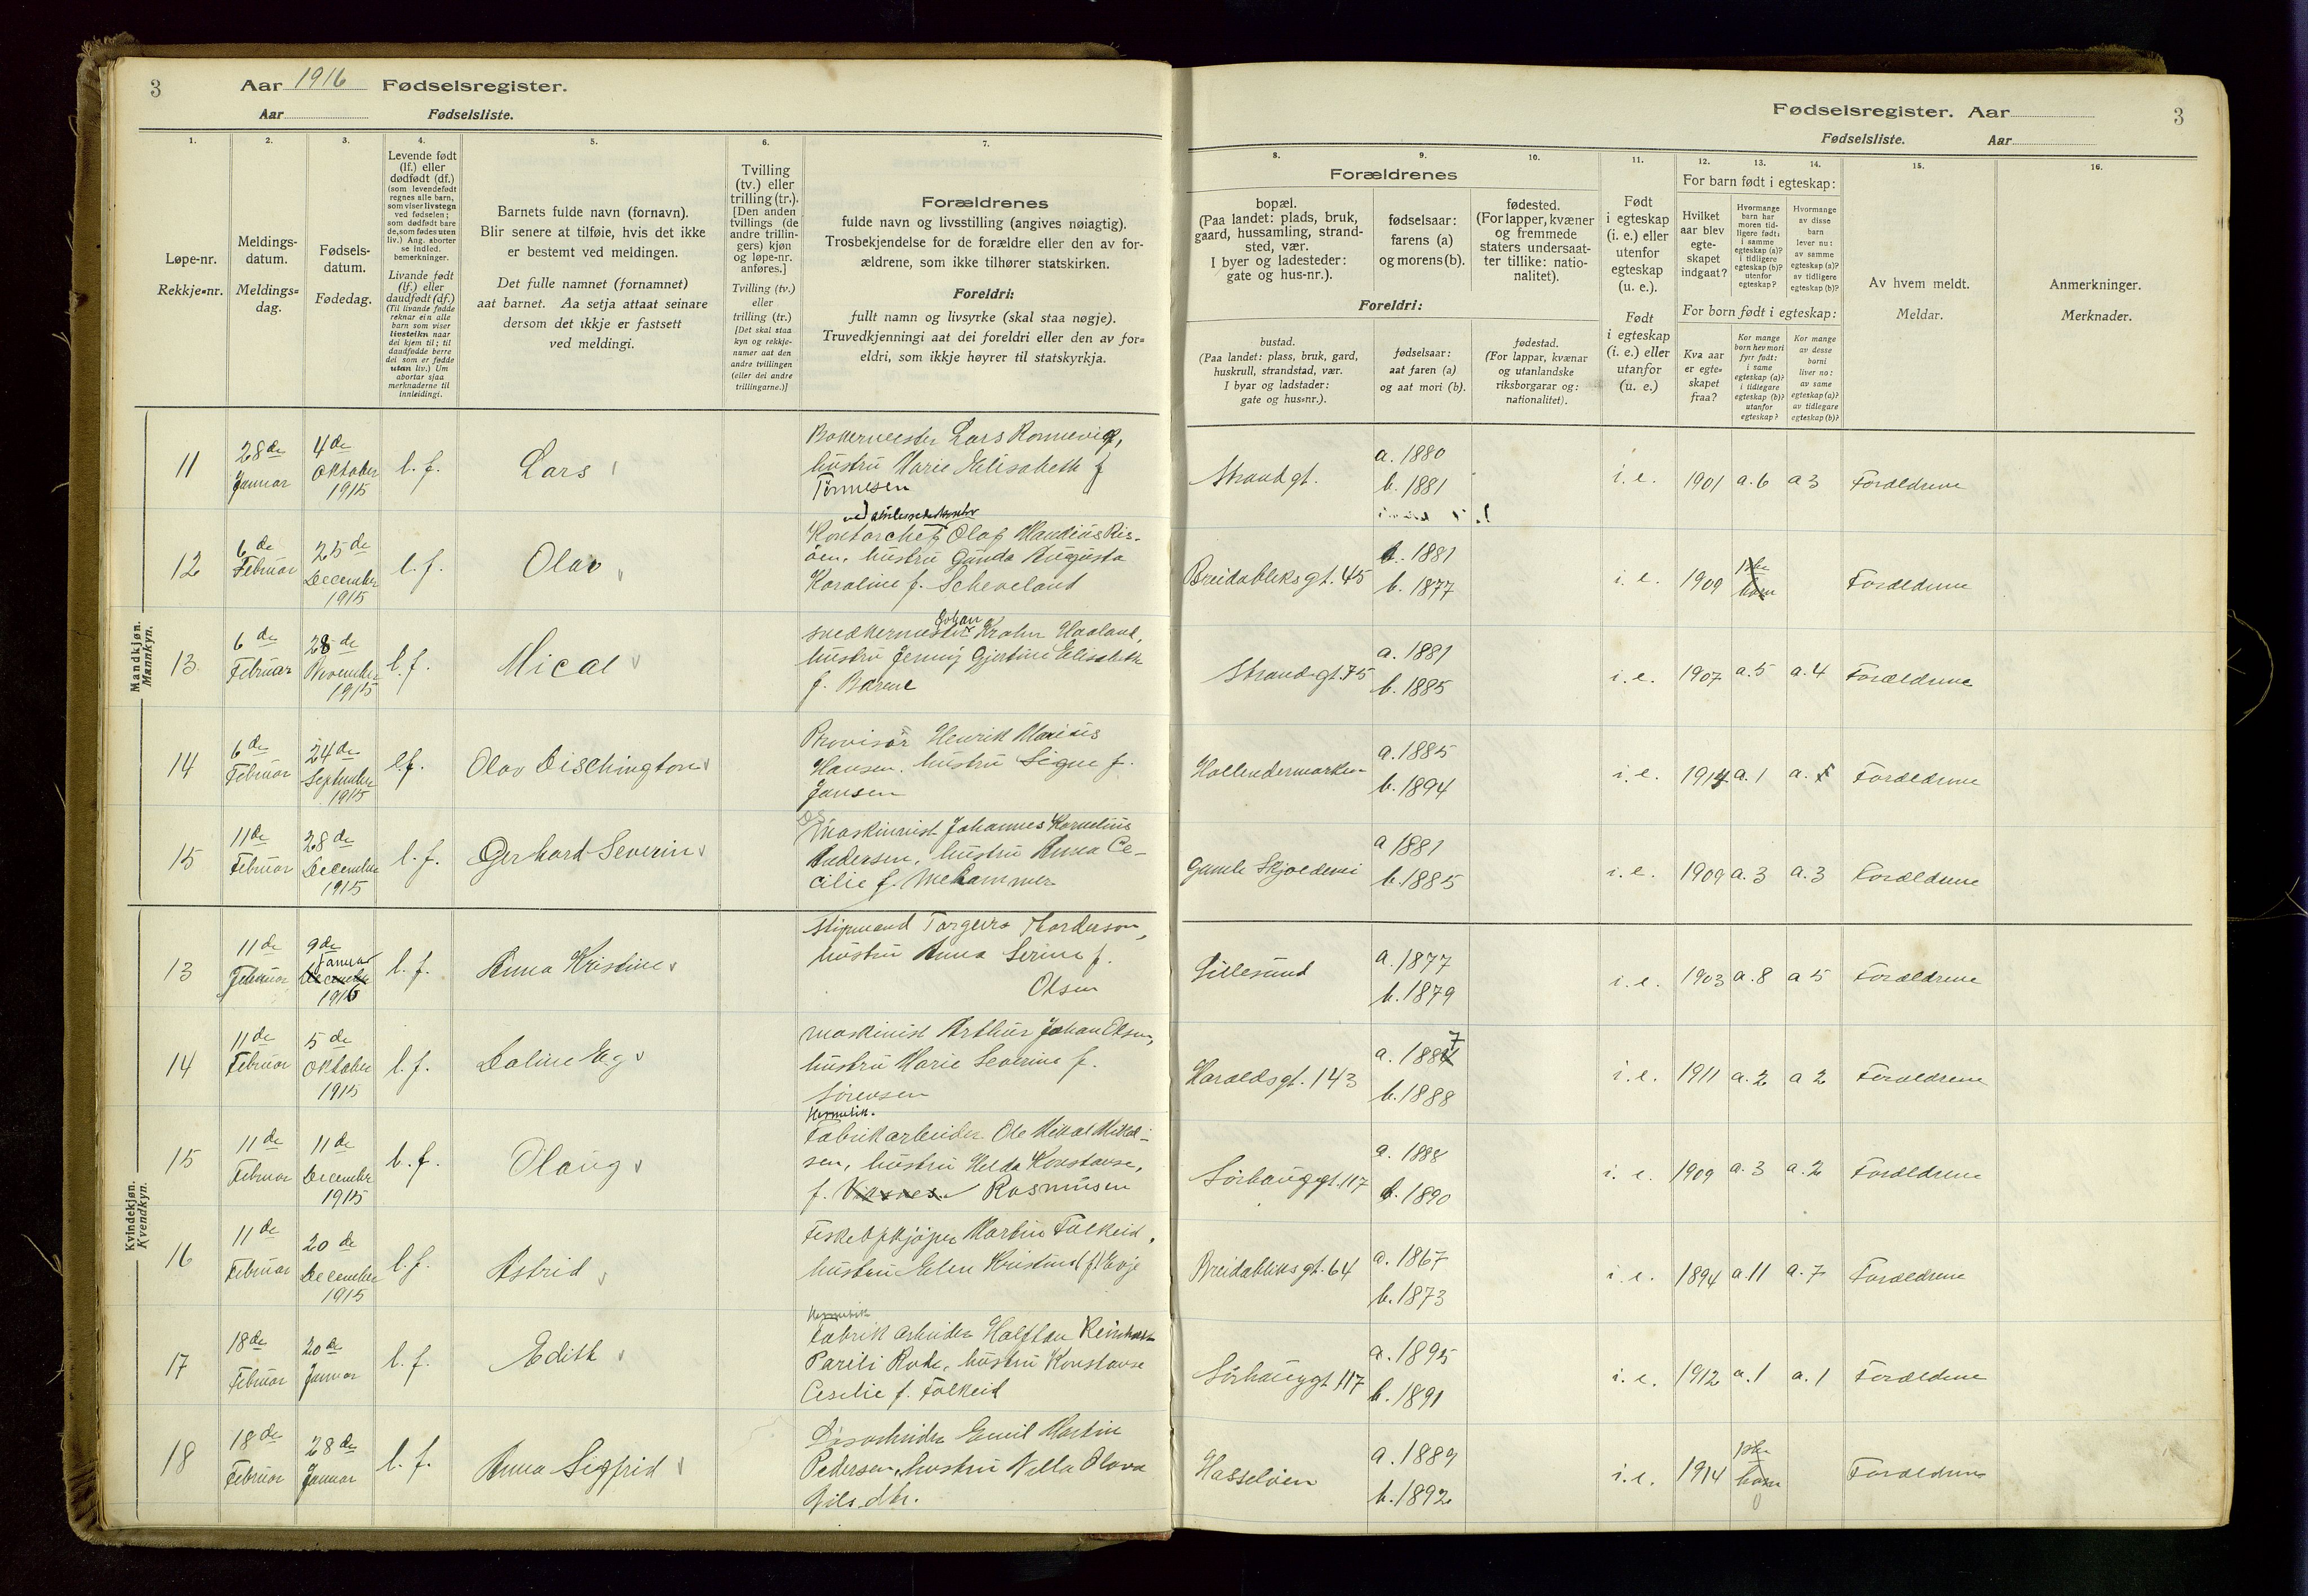 3
Aar 1916 Fødselsregister.
Aar Fødselsliste.
1.
2.
3.
4.
5.
6.
7.
Løpe-nr.
Rekkje-nr.
Meldings-
datum.
Meldings-
dag.
Fødsels-
datum.
Fødedag.
Levende født
(lf.) eller
dødfødt (df.)
(som levendefødt
regnes alle barn,
som viser livstegn
ved fødselen;
som dødfødt bare
de, som fødes uten
liv.) Ang. aborter
se indled.
bemerkninger.
Livande født
(lf.) eller
daudfødt (df.)
(Til livande fødde
reknar ein alle
born som viser
livsteikn naar
dei kjem til; til
daudfødde berre
dei som er fødde
utan liv.) Um
abortar sjaa
merknaderne til
innleidingi.
Barnets fulde navn (fornavn).
Blir senere at tilføie, hvis det ikke
er bestemt ved meldingen.
Det fulle namnet (fornamnet)
aat barnet. Aa setja attaat seinare
dersom det ikkje er fastsett
ved meldingi.
Tvilling
(tv.) eller
trilling (tr.).
[Den anden
tvillings (de
andre trillin-
gers) kjøn
og løpe-nr.
anføres.]
Tvilling (tv.)
eller
trilling (tr.)
[Det skal staa
kyn og rekkje-
numer aat den
andre tvillingen
(eller dei andre
trillingarne.)]
Forældrenes
fulde navn og livsstilling (angives nøiagtig).
Trosbekjendelse for de forældre eller den av for-
ældrene, som ikke tilhører statskirken.
Foreldri:
fullt namn og livsyrke (skal staa nøgje).
Truvedkjenningi aat dei foreldri eller den av for-
eldri, som ikkje høyrer til statskyrkja.
Fødselsregister. Aar
3
Fødselsliste. Aar
8.
9.
10.
11.
12.
13.
14.
15.
16.
Forældrenes
bopæl.
(Paa landet: plads, bruk,
gaard, hussamling, strand-
sted, vær.
I byer og ladesteder:
gate og hus-nr.).
fødselsaar:
farens (a)
og morens (b).
fødested.
(For lapper, kvæner
og fremmede
staters undersaat-
ter tillike: natio-
nalitet).
Foreldri:
bustad.
(Paa landet: plass, bruk, gard,
huskrull, strandstad, vær.
I byar og ladstader:
gate og hus-nr.).
fødselsaar:
aat faren (a)
og aat mori (b).
fødestad.
(For lappar, kvænar
og utanlandske
riksborgarar og:
nationalitet).
Født
i egteskap
(i. e.) eller
utenfor
egteskap
(u. e.).
Født
i egteskap
(i. e.) eller
utanfor
(u. e.)
For barn født i egteskap:
Hvilket
aar blev
egte-
skapet
indgaat?
Hvormange
barn har
moren tid-
ligere født:
i samme
egteskap (a)?
i tidligere
egteskap (b)?
utenfor
egteskap?
Hvormange
av disse
barn
lever nu:
av samme
egteskap (a)?
av tidligere
egteskap (b)?
For born født i egteskap:
Kva aar
er egte-
skapet
fraa?
Kor mange
born hev mori
fyrr født:
i same
egteskap (a)?
i tidlegare
egteskap (b)?
utanfor
egteskap?
Kor mange
av desse
borni
liver no:
av same
egteskap (a)?
av tidlegare
egteskap (b)?
Av hvem meldt.
Meldar.
Anmerkninger.
Merknader.
Mandkjøn.
Mannkyn.
11 28de Januar 4de Oktober 1915 l. f. Lars
Lars Rønnevig,
hustru Marie Elisabeth f
Tønnesen
Strandgt. a. 1880 b. 1881 i. e. 1901 a. 6 a 3 Forældrene
12 6de Februar 25de December 1915 l. f. Olav
Kontorchef Olaf Ris-
øen, hustru Gunda Augusta
Karoline f. Scheveland
Breidabliksgt. 45 1881 b. 1877 i. e. 1909 1ste barn Forældrene
13 6de Februar 28de November 1915 l. f. Mical
Johan
Krohn Haaland,
hustru Jenny Gjertine Elisabeth
f. Barene
Strandgt. 75 a. 1881 b. 1885 i. e. 1907 a. 5 a. 4 Forældrene
14 6de Februar 24de September 1915 l.f. Olav Dischington
Provisor Henrik Marius
Hansen, hustru Signe f.
Jansen
a. 1885 b. 1894 i. e. 1914 a. 1 Forældrene
15 11de Februar 28de December 1915 l. f. Gerhard Severin
Maskinist Johannes Kornelius
Andersen, hustru Anna Ce-
cilie f. Mehammer
Gamle Skjoldevei a 1881 b. 1885 i. e. 1909 a. 3 a. 3 Forældrene
Kvindekjøn.
Kvendkyn.
13 11de Februar 9de Januar 1916 l. f. Anna Kristine
Styrmand Torgeirs Thorderson,
hustru Anna Serine f.
Olsen
Lillesund a. 1877 b. 1879 i. e. 1903 a. 8 a 5 Forældrene
14 11de Februar 5de Oktober 1915 l. f. Daline Eg
Maskinist Arthur Johan Olsen,
hustru Marie Severine f.
Sørensen
Haraldsgt. 143 a. 1887 b. 1888 i. e. 1911 a. 2 a 2 Forældrene
15 11de Februar 11de December 1915 l. f. Olaug
Hermetik.
Fabrikarbeider Ole Mikal Mikal-
sen, hustru Helda Konstanse,
f. Rasmusen
Sørhauggt. 117 a. 1888 b. 1890 i. e. 1909 a. 3 a. 2 Forældrene
16 11de Februar 20de December 1915 l. f. Astrid
Fiskeopkjøper Martin Falkeid,
hustru Elen Kristine f. Evje
Breidabliksgt. 64 a. 1867 b. 1873 i. e. 1894 a. 11 a. 7 Forældrene
17 18de Februar 20de Januar l. f. Edith
Hermetik
Fabrik arbeider Halfdan
Rode, hustru Konstanse
Cesilie f. Falkeid
Sørhauggt. 117 a. 1895 b. 1891 i. e. 1912 a. 1 a. 1 Forældrene
18 18de Februar 28de Januar l. f. Anna Sigfrid
Emil Martin
Pedersen, hustru Nella Olava
Nilsdtr.
Hasseløen a. 1889 b. 1892 i. e. 1914 1ste barn 0 Forældrene